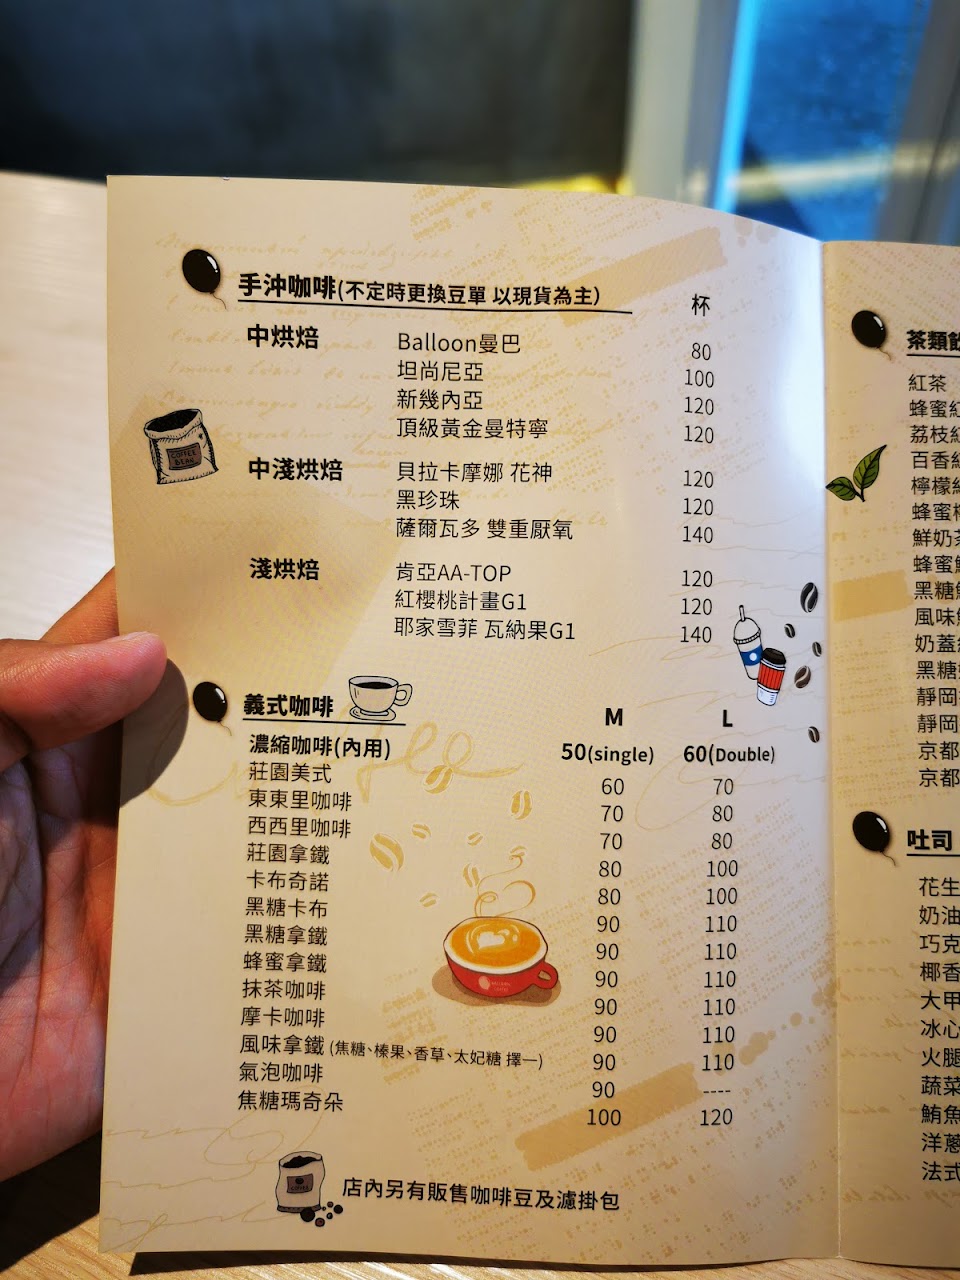 手沖咖啡(不定時更換豆單 以現貨為主)
杯
中烘焙 Balloon曼巴 80
坦尚尼亞 100
新幾內亞 120
頂級黃金曼特寧 120
中淺烘焙 貝拉卡摩娜 花神 120
黑珍珠 120
薩爾瓦多 雙重厭氧 140
淺烘焙 肯亞AA-TOP 120
紅櫻桃計畫G1 120
耶家雪菲 瓦納果G1 140
COFFEE BEAN
義式咖啡 M L
濃縮咖啡(內用) 50(single) 60(Double)
莊園美式 60 70
東東里咖啡 70 80
西西里咖啡 70 80
莊園拿鐵 80 100
卡布奇諾 80 100
黑糖卡布 90 110
黑糖拿鐵 90 110
蜂蜜拿鐵 90 110
抹茶咖啡 90 110
摩卡咖啡 90 110
風味拿鐵 (焦糖、榛果、香草、太妃糖 擇一) 90 110
氣泡咖啡 90 ----
焦糖瑪奇朵 100 120
店內另有販售咖啡豆及濾掛包
茶類飲
紅茶
蜂蜜紅
荔枝紅
百香紅
檸檬紅
蜂蜜檸
鮮奶茶
蜂蜜鮮
黑糖鮮
風味鮮
奶蓋
黑糖
靜岡
靜岡
京都
京都
吐司
花生
奶油
巧克
椰香
大甲
冰心
火腿
蔬菜
鮪魚
洋蔥
法式